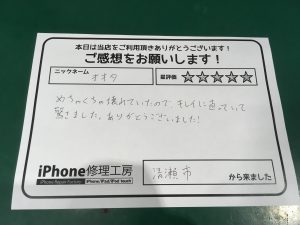 本日は当店をご利用頂きありがとうございます！
ご感想をお願いします！
ニックネーム
オオタ
総評価 ☆☆☆☆☆
めちゃくちゃ壊れていたので、キレイに直っていて
驚きました。ありがとうございました！
iPhone修理工房
iPhone Repair Factory iPhone/iPad/iPod touch
清瀬市 から来ました